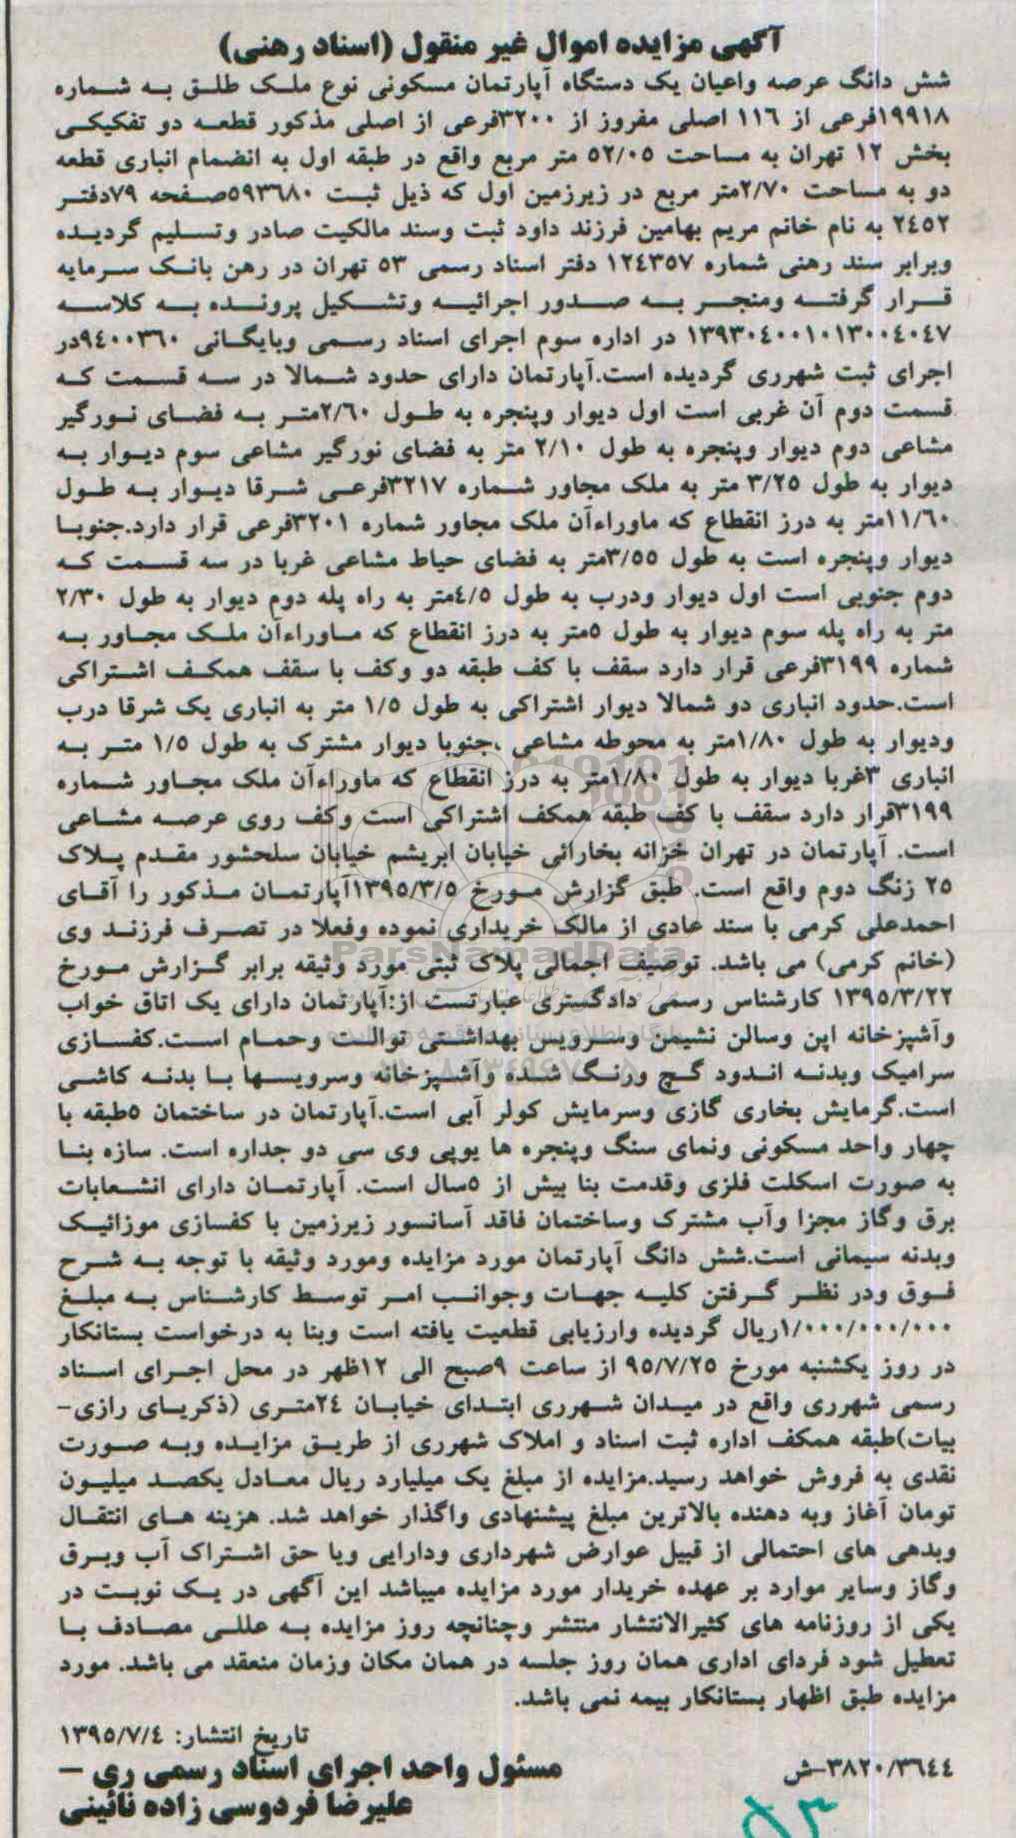 آگهی مزایده اموال غیر منقول (اسناد رهنی)
شش دانگ عرصه واعیان یک دستگاه آپارتمان مسکونی نوع ملک طلق به شماره
۱۹۹۱۸فرعی از ۱۱۶ اصلی مفروز از ۳۲۰۰فرعی از اصلی مذکور قطعه دو تفکیکی
بخش ۱۲ تهران به مساحت ۵۲/۰۵ متر مربع واقع در طبقه اول به انضمام انباری قطعه
دو به مساحت ۲/۷۰متر مربع در زیرزمین اول که ذیل ثبت ۵۹۳۶۸۰صفحه ۷۹دفتر
۲٤۵۲ به نام خانم مریم بهامین فرزند داود ثبت وسند مالکیت صادر وتسلیم گردیده
وبرابر سند رهنی شماره ۱۲٤۳۵۷ دفتر اسناد رسمی ۵۳ تهران در رهن بانک سرمایه
قرار گرفته ومنجر به صدور اجرائیه وتشکیل پرونده به کلاسه
۱۳۹۳۰٤۰۰۱۰۱۳۰۰٤۰٤۷ در اداره سوم اجرای اسناد رسمی وبایگانی ۹٤۰۰۳۶۰در
اجرای ثبت شهرری گردیده است.آپارتمان دارای حدود شمالا در سه قسمت که
قسمت دوم آن غربی است اول دیوار وپنجره به طول ۲/۶۰متر به فضای نورگیر
مشاعی دوم دیوار وپنجره به طول ۲/۱۰ متر به فضای نورگیر مشاعی سوم دیوار به
دیوار به طول ۳/۲۵ متر به ملک مجاور شماره ۳۲۱۷فرعی شرقا دیوار به طول
۱۱/۶۰متر به درز انقطاع که ماوراءآن ملک مجاور شماره ۳۲۰۱فرعی قرار دارد.جنوبا
دیوار وپنجره است به طول ۳/۵۵متر به فضای حیاط مشاعی غربا در سه قسمت که
دوم جنوبی است اول دیوار ودرب به طول ٤/۵متر به راه پله دوم دیوار به طول ۲/۳۰
متر به راه پله سوم دیوار به طول ۵متر به درز انقطاع که ماوراءآن ملک مجاور به
شماره ۳۱۹۹فرعی قرار دارد سقف با کف طبقه دو وکف با سقف همکف اشتراکی
است.حدود انباری دو شمالا دیوار اشتراکی به طول ۱/۵ متر به انباری یک شرقا درب
ودیوار به طول ۱/۸۰متر به محوطه مشاعی ،جنوبا دیوار مشترک به طول ۱/۵ متر به
انباری ۳غربا دیوار به طول ۱/۸۰متر به درز انقطاع که ماوراءآن ملک مجاور شماره
۳۱۹۹قرار دارد سقف با کف طبقه همکف اشتراکی است وکف روی عرصه مشاعی
است. آپارتمان در تهران خزانه بخارائی خیابان ابریشم خیابان سلحشور مقدم پلاک
۲۵ زنگ دوم واقع است. طبق گزارش مورخ ۱۳۹۵/۳/۵آپارتمان مذکور را آقای
احمدعلی کرمی با سند عادی از مالک خریداری نموده وفعلا در تصرف فرزند وی
(خانم کرمی) می باشد. توصیف اجمالی پلاک ثبتی مورد وثیقه برابر گزارش مورخ
۱۳۹۵/۳/۲۲ کارشناس رسمی دادگستری عبارتست از:آپارتمان دارای یک اتاق خواب
وآشپزخانه اپن وسالن نشیمن وسرویس بهداشتی توالت وحمام است.کفسازی
سرامیک وبدنه اندود گچ ورنگ شده وآشپزخانه وسرویسها با بدنه کاشی
است.گرمایش بخاری گازی وسرمایش کولر آبی است.آپارتمان در ساختمان ۵طبقه با
چهار واحد مسکونی ونمای سنگ وپنجره ها یوپی وی سی دو جداره است. سازه بنا
به صورت اسکلت فلزی وقدمت بنا بیش از ۵سال است. آپارتمان دارای انشعابات
برق وگاز مجزا وآب مشترک وساختمان فاقد آسانسور زیرزمین با کفسازی موزائیک
وبدنه سیمانی است.شش دانگ آپارتمان مورد مزایده ومورد وثیقه با توجه به شرح
فوق ودر نظر گرفتن کلیه جهات وجوانب امر توسط کارشناس به مبلغ
۱/۰۰۰/۰۰۰/۰۰۰ریال گردیده وارزیابی قطعیت یافته است وبنا به درخواست بستانکار
در روز یکشنبه مورخ ۹۵/۷/۲۵ از ساعت ۹صبح الی ۱۲ظهر در محل اجرای اسناد
رسمی شهرری واقع در میدان شهرری ابتدای خیابان ۲٤متری (ذکریای رازی-
بیات)طبقه همکف اداره ثبت اسناد و املاک شهرری از طریق مزایده وبه صورت
نقدی به فروش خواهد رسید.مزایده از مبلغ یک میلیارد ریال معادل یکصد میلیون
تومان آغاز وبه دهنده بالاترین مبلغ پیشنهادی واگذار خواهد شد. هزینه های انتقال
وبدهی های احتمالی از قبیل عوارض شهرداری ودارایی ویا حق اشتراک آب وبرق
وگاز وسایر موارد بر عهده خریدار مورد مزایده میباشد این آگهی در یک نوبت در
یکی از روزنامه های کثیرالانتشار منتشر وچنانچه روز مزایده به عللی مصادف با
تعطیل شود فردای اداری همان روز جلسه در همان مکان وزمان منعقد می باشد. مورد
مزایده طبق اظهار بستانکار بیمه نمی باشد.
تاریخ انتشار: ۱۳۹۵/۷/٤
۳۸۲۰/۳۶٤٤-ش
مسئول واحد اجرای اسناد رسمی ری -
علیرضا فردوسی زاده نائینی
ParsNamadData